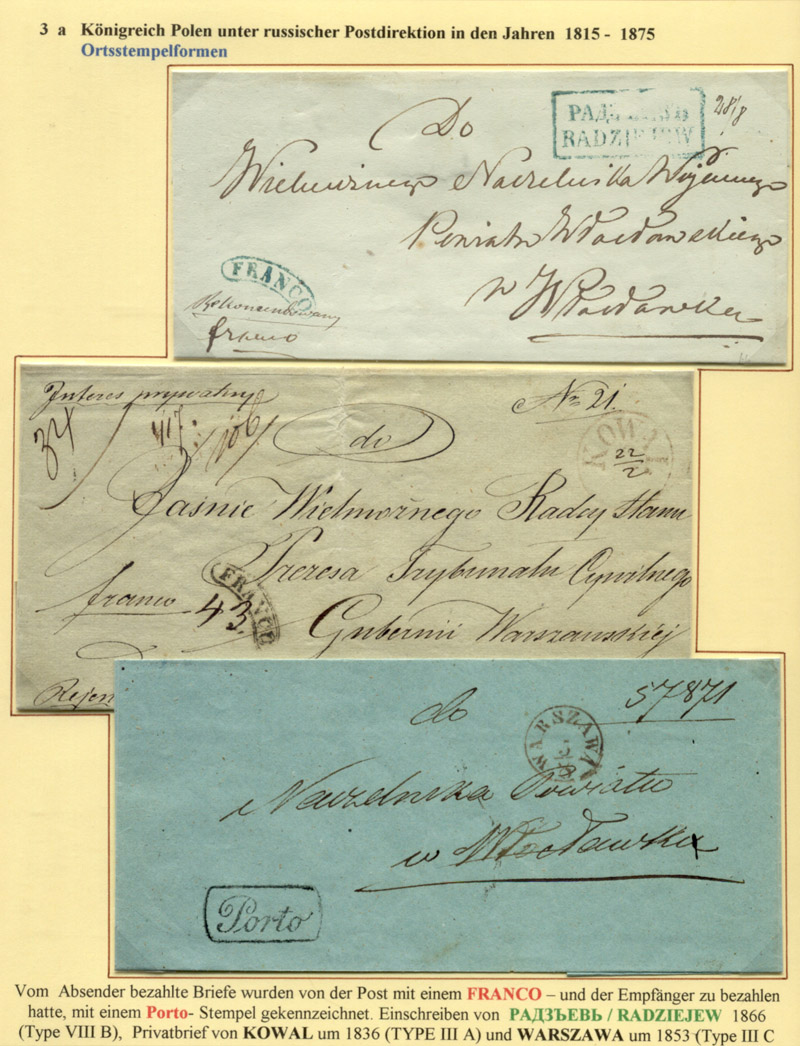 3 a Königreich Polen unter russischer Postdirektion in den Jahren 1815 - 1875
Ortsstempelformen
RADZIEJEW
28/8
Do
Wielmożnego Naczelnika Wojennego
Powiatu Włocławskiego
w Włocławku
FRANCO
Rekomendowany
franco
Interes prywatny
No 21.
do
KOWAL
22/2
Jaśnie Wielmożnego Radcy Stanu
Prezesa Trybunału Cywilnego
FRANCO
franco
43.
Gubernii Warszawskiej
Rejen
do
57871
WARSZAWA
Naczelnika Powiatu
w Włocławku
Porto
Vom Absender bezahlte Briefe wurden von der Post mit einem FRANCO – und der Empfänger zu bezahlen
hatte, mit einem Porto- Stempel gekennzeichnet. Einschreiben von РАДЗЪЕВЬ / RADZIEJEW 1866
(Type VIII B), Privatbrief von KOWAL um 1836 (TYPE III A) und WARSZAWA um 1853 (Type III C